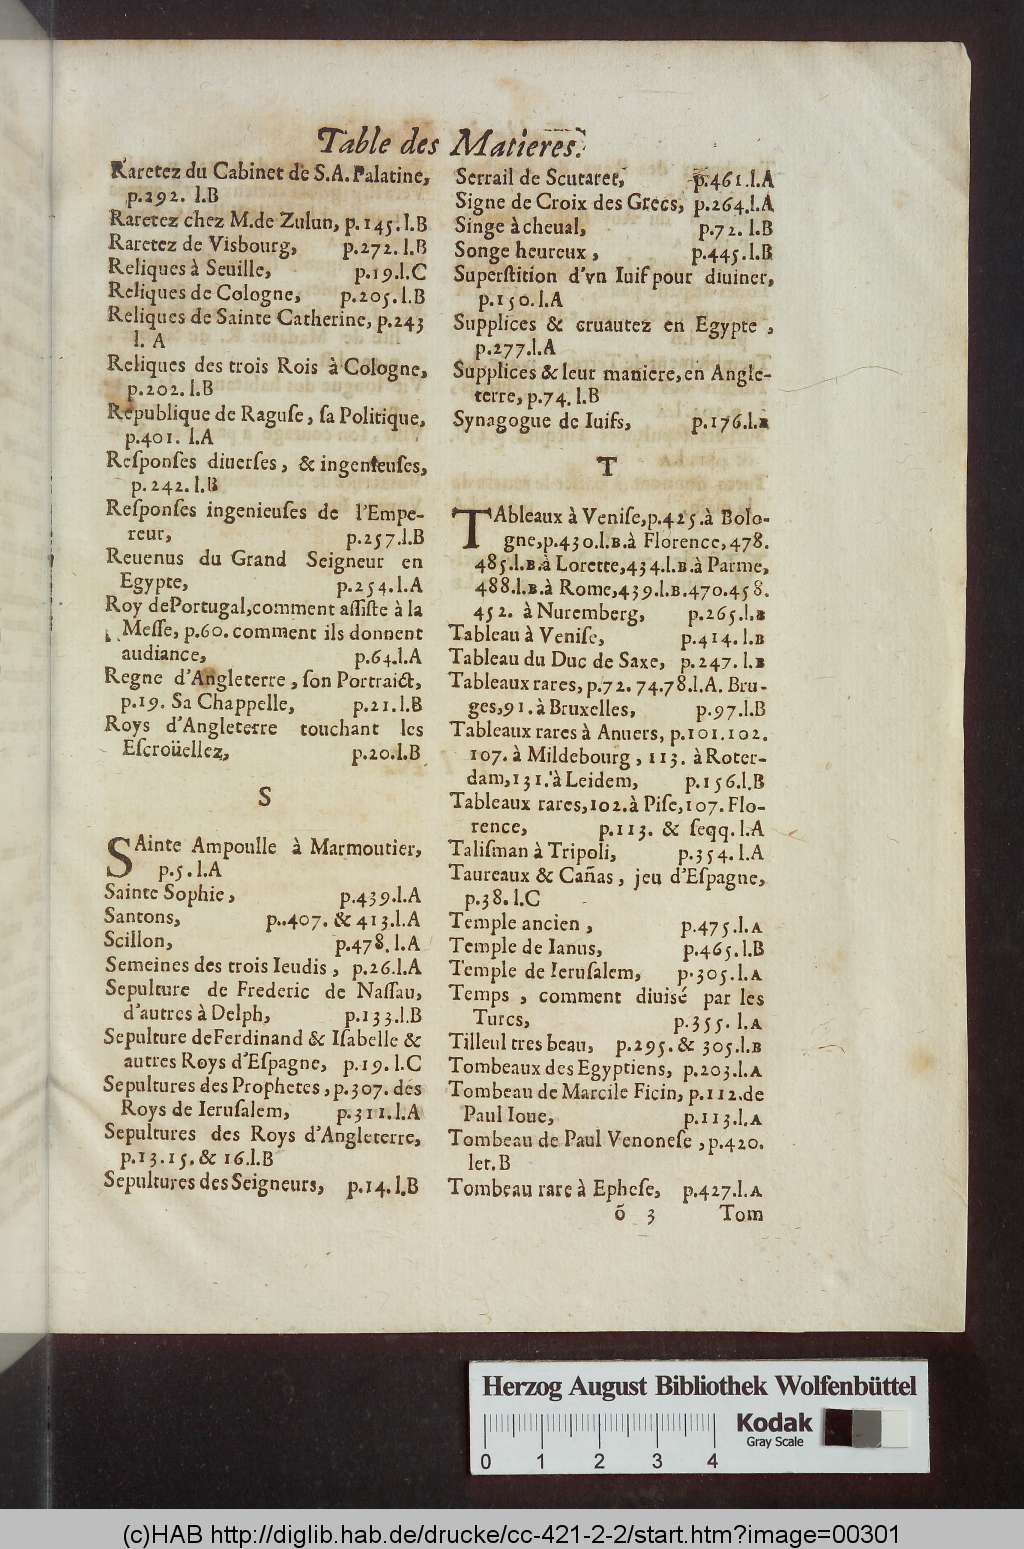 Table des Matieres.
Raretez du Cabinet de S.A. Palatine,
p.292. l.B
Raretez chez M. de Zulun, p.145.l.B
Raretez de Visbourg, p.272.l.B
Reliques à Seuille, p.19.l.C
Reliques de Cologne, p.205.l.B
Reliques de Sainte Catherine, p.243
l. A
Reliques des trois Rois à Cologne,
p.202.l.B
Republique de Raguſe, ſa Politique,
p.401. l.A
Reſponſes diuerſes, & ingenieuſes,
p.242.l.B
Reſponſes ingenieuſes de l'Empe-
reur, p.257.l.B
Reuenus du Grand Seigneur en
Egypte, p.254.l.A
Roy de Portugal, comment aſſiſte à la
Meſſe, p.60. comment ils donnent
audiance, p.64.l.A
Regne d'Angleterre, ſon Portraict,
p.19. Sa Chappelle, p.21.l.B
Roys d'Angleterre touchant les
Eſcroüellez, p.20.l.B
S
SAinte Ampoulle à Marmoutier,
p.5.l.A
Sainte Sophie, p.439.l.A
Santons, p..407. & 413.l.A
Scillon, p.478.l.A
Semeines des trois Ieudis, p.26.l.A
Sepulture de Frederic de Naſſau,
d'autres à Delph, p.133.l.B
Sepulture de Ferdinand & Iſabelle &
autres Roys d'Eſpagne, p.19.l.C
Sepultures des Prophetes, p.307. des
Roys de Ieruſalem, p.311.l.A
Sepultures des Roys d'Angleterre,
p.13.15.& 16.l.B
Sepultures des Seigneurs, p.14.l.B
Serrail de Scutaret, p.461.l.A
Signe de Croix des Grecs, p.264.l.A
Singe à cheual, p.72.l.B
Songe heureux, p.445.l.B
Superſtition d'vn Iuif pour diuiner,
p.150.l.A
Supplices & cruautez en Egypte,
p.277.l.A
Supplices & leur maniere, en Angle-
terre, p.74.l.B
Synagogue de Iuifs, p.176.l.B
T
TAbleaux à Veniſe, p.425.à Bolo-
gne, p.430.l.B.à Florence, 478.
485.l.B.à Lorette, 434.l.B.à Parme,
488.l.B.à Rome, 439.l.B.470.458.
452. à Nuremberg, p.265.l.B
Tableau à Veniſe, p.414.l.B
Tableau du Duc de Saxe, p.247.l.B
Tableaux rares, p.72.74.78.l.A. Bru-
ges, 91.à Bruxelles, p.97.l.B
Tableaux rares à Anuers, p.101.102.
107. à Mildebourg, 113. à Roter-
dam, 131.à Leidem, p.156.l.B
Tableaux rares, 102.à Piſe, 107. Flo-
rence, p.113. & ſeqq.l.A
Taliſman à Tripoli, p.354.l.A
Taureaux & Cañas, jeu d'Eſpagne,
p.38.l.C
Temple ancien, p.475.l.A
Temple de Ianus, p.465.l.B
Temple de Ieruſalem, p.305.l.A
Temps, comment diuisé par les
Turcs, p.355. l.A
Tilleul tres beau, p.295.& 305.l.B
Tombeaux des Egyptiens, p.203.l.A
Tombeau de Marcile Ficin, p.112.de
Paul Ioue, p.113.l.A
Tombeau de Paul Venoneſe, p.420.
let.B
Tombeau rare à Epheſe, p.427.l.A
õ 3 Tom
Herzog August Bibliothek Wolfenbüttel
Kodak
Gray Scale
0 1 2 3 4
(c)HAB http://diglib.hab.de/drucke/cc-421-2-2/start.htm?image=00301